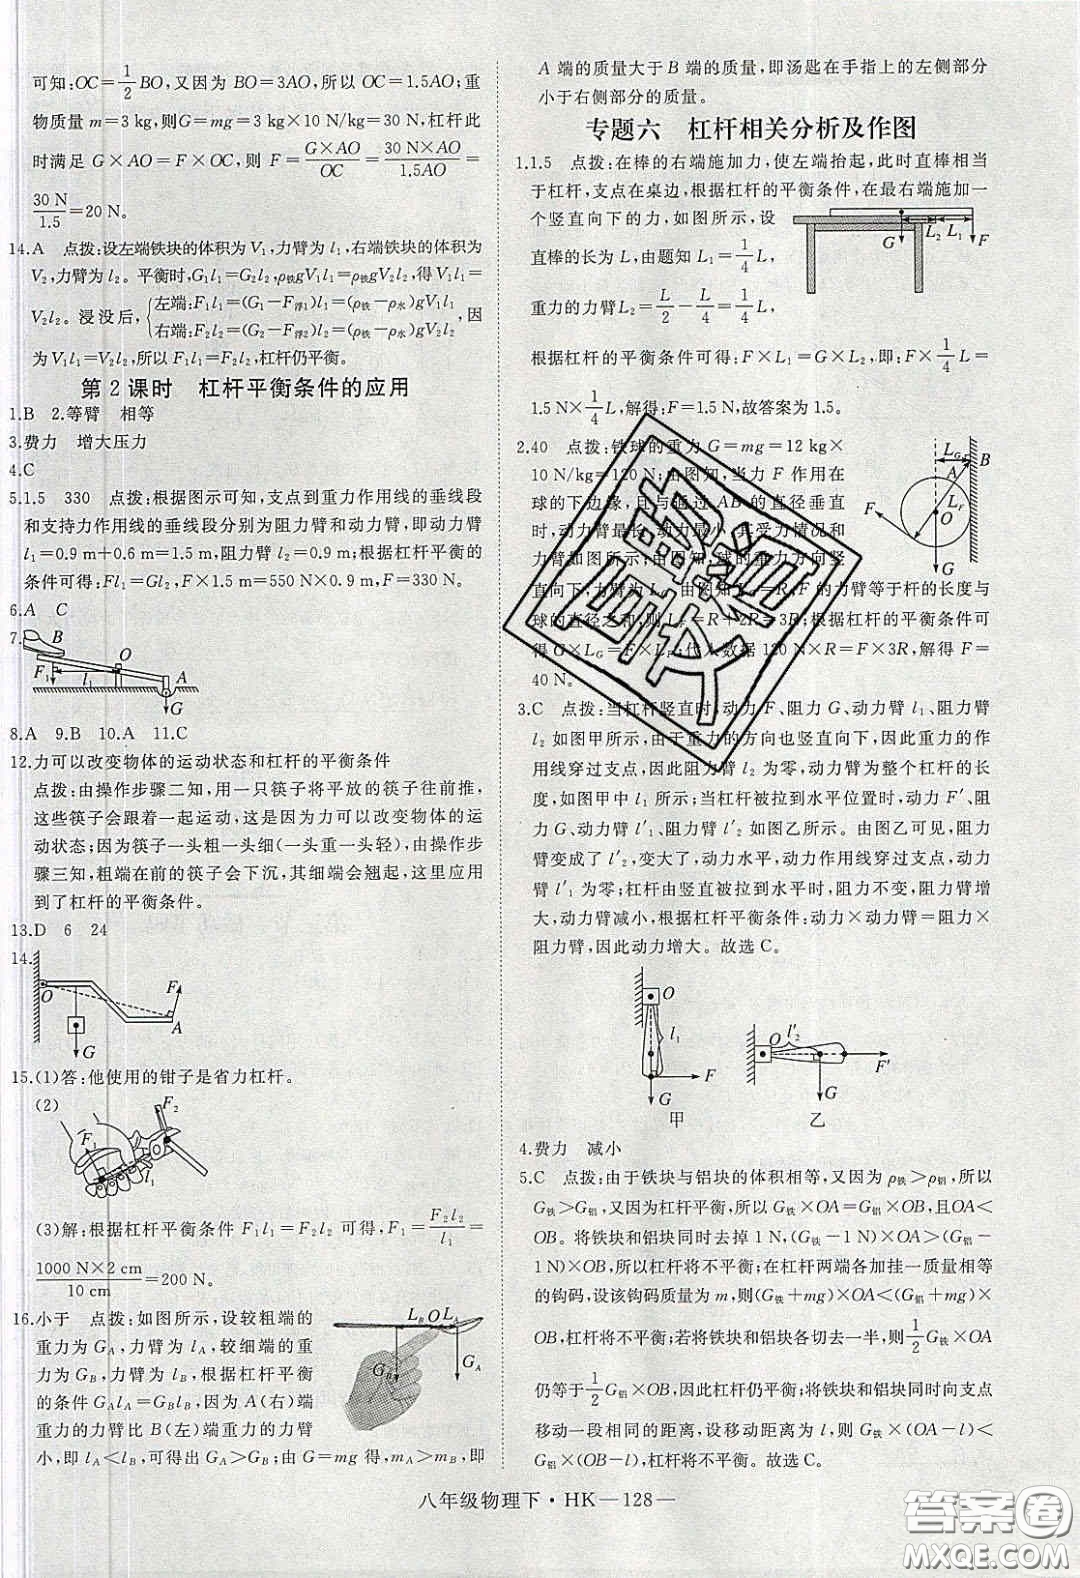 可知:OC=1/2BO,又因为 BO=3AO,所以 OC=1.5AO;重
物质量 m=3 kg,则G=mg=3 kg×10 N/kg=30 N,杠杆此
时满足 G×AO=F×OC,则 F=G×AO/OC=30 N×AO/1.5AO=
30 N/1.5=20 N。
14.A 点拨:设左端铁块的体积为 V₁,力臂为 l₁,右端铁块的体积为
V₂,力臂为 l₂。平衡时,G₁l₁=G₂l₂,ρ铁gV₁l₁=ρ铁gV₂l₂,得 V₁l₁=
V₂l₂。浸没后,{左端:F₁l₁=(G₁-F浮1)l₁=(ρ铁-ρ水)gV₁l₁
右端:F₂l₂=(G₂-F浮2)l₂=(ρ铁-ρ水)gV₂l₂,因
为 V₁l₁=V₂l₂,所以 F₁l₁=F₂l₂,杠杆仍平衡。
第 2 课时 杠杆平衡条件的应用
1.B 2.等臂 相等
3.费力 增大压力
4.C
5.1.5 330 点拨:根据图示可知,支点到重力作用线的垂线段
和支持力作用线的垂线段分别为阻力臂和动力臂,即动力臂
l₁=0.9 m+0.6 m=1.5 m,阻力臂 l₂=0.9 m;根据杠杆平衡的
条件可得:Fl₁=Gl₂,F×1.5 m=550 N×0.9 m,F=330 N。
6.A C
7.
B
F₁
l₁
O
A
G
8.A 9.B 10.A 11.C
12.力可以改变物体的运动状态和杠杆的平衡条件
点拨:由操作步骤二知,用一只筷子将平放的筷子往前推,
这些筷子会跟着一起运动,这是因为力可以改变物体的运
动状态;因为筷子一头粗一头细(一头重一头轻),由操作步
骤三知,粗端在前的筷子会下沉,其细端会翘起,这里应用
到了杠杆的平衡条件。
13.D 6 24
14.
O
F
A
G
15.(1)答:他使用的钳子是省力杠杆。
(2)
F₂
F₁
l₁
(3)解:根据杠杆平衡条件 F₁l₁=F₂l₂ 可得,F₁=F₂l₂/l₁=
1000 N×2 cm/10 cm=200 N。
16.小于 点拨:如图所示,设较粗端的
重力为 G_A,力臂为 l_A,较细端的重
力为 G_B,力臂为 l_B,根据杠杆平衡
的条件 G_Al_A=G_Bl_B。因为 A(右)端
重力的力臂比 B(左)端重力的力臂
小,即 l_A<l_B,可得出 G_A>G_B;由 G=mg 得,m_A>m_B,即
L_B O L_A
G_B
G_A
A 端的质量大于 B 端的质量,即汤匙在手指上的左侧部分
小于右侧部分的质量。
专题六 杠杆相关分析及作图
1.1.5 点拨:在棒的右端施加力,使左端抬起,此时直棒相当
于杠杆,支点在桌边,根据杠杆的平衡条件,在最右端施加一
个竖直向下的力,如图所示,设
直棒的长为 L,由题知 L₁=1/4L,
重力的力臂L₂=L/2-L/4=1/4L,
G L₂ L₁ F
根据杠杆的平衡条件可得:F×L₁=G×L₂,即:F×1/4L=
1.5 N×1/4L,解得:F=1.5 N,故答案为 1.5。
2.40 点拨:铁球的重力 G=mg=12 kg×
10 N/kg=120 N;由图知,当力 F 作用在
球的下边缘,且与通过 AB 的直径垂直
时,动力臂最长,动力最小,其受力情况和
力臂如图所示;由图知,球的重力方向竖
直向下,力臂为 L_G,由图知 L_G=R,F 的力臂等于杆的长度与
球的直径之和,则 L_F=R+2R=3R;根据杠杆的平衡条件可
得 G×L_G=F×L_F;代入数据 120 N×R=F×3R,解得 F=
40 N。
L_G
B
A
L_F
F
O
G
3.C 点拨:当杠杆竖直时,动力 F、阻力 G、动力臂 l₁、阻力臂
l₂ 如图甲所示,由于重力的方向也竖直向下,因此重力的作
用线穿过支点,因此阻力臂 l₂ 为零,动力臂为整个杠杆的长
度,如图甲中 l₁ 所示;当杠杆被拉到水平位置时,动力 F′、阻
力 G、动力臂 l′₁、阻力臂 l′₂ 如图乙所示。由图乙可见,阻力
臂变成了 l′₂,变大了,动力水平,动力作用线穿过支点,动力
臂 l′₁ 为零;杠杆由竖直被拉到水平时,阻力不变,阻力臂增
大,动力臂减小,根据杠杆平衡条件:动力×动力臂=阻力×
阻力臂,因此动力增大。故选 C。
O
l₁
F
G
甲
O
l′₂
F′
G
乙
4.费力 减小
5.C 点拨:由于铁块与铝块的体积相等,又因为 ρ铁>ρ铝,所以
G铁>G铝,又因为杠杆平衡,所以 G铁×OA=G铝×OB,且OA<
OB。将铁块和铝块同时去掉 1 N,则(G铁-1 N)×OA>(G铝-
1 N)×OB,所以杠杆将不平衡;在杠杆两端各加挂一质量相等
的钩码,设该钩码质量为 m,则(G铁+mg)×OA<(G铝+mg)×
OB,杠杆将不平衡;若将铁块和铝块各切去一半,则1/2G铁×OA
仍等于1/2G铝×OB,因此杠杆仍平衡;将铁块和铝块同时向支点
移动一段相同的距离,设移动距离为 l,则G铁×(OA-l)<
G铝×(OB-l),杠杆将不平衡。故选 C。
八年级物理下·HK—128—
答案圈
MXQE.COM